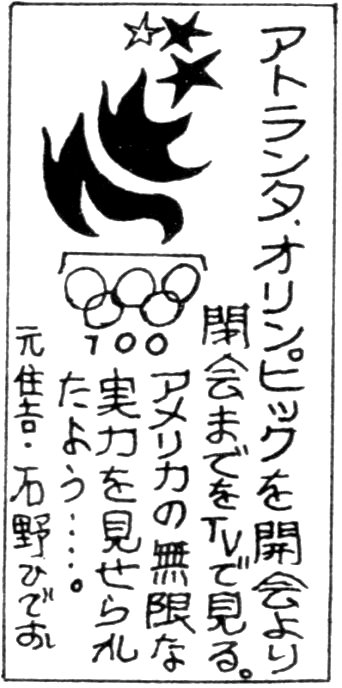 アトランタ・オリンピックを開会より
閉会までをTVで見る。
アメリカの無限な
実力を見せられ
たよう‥‥。
元住吉・石野ひでお
100